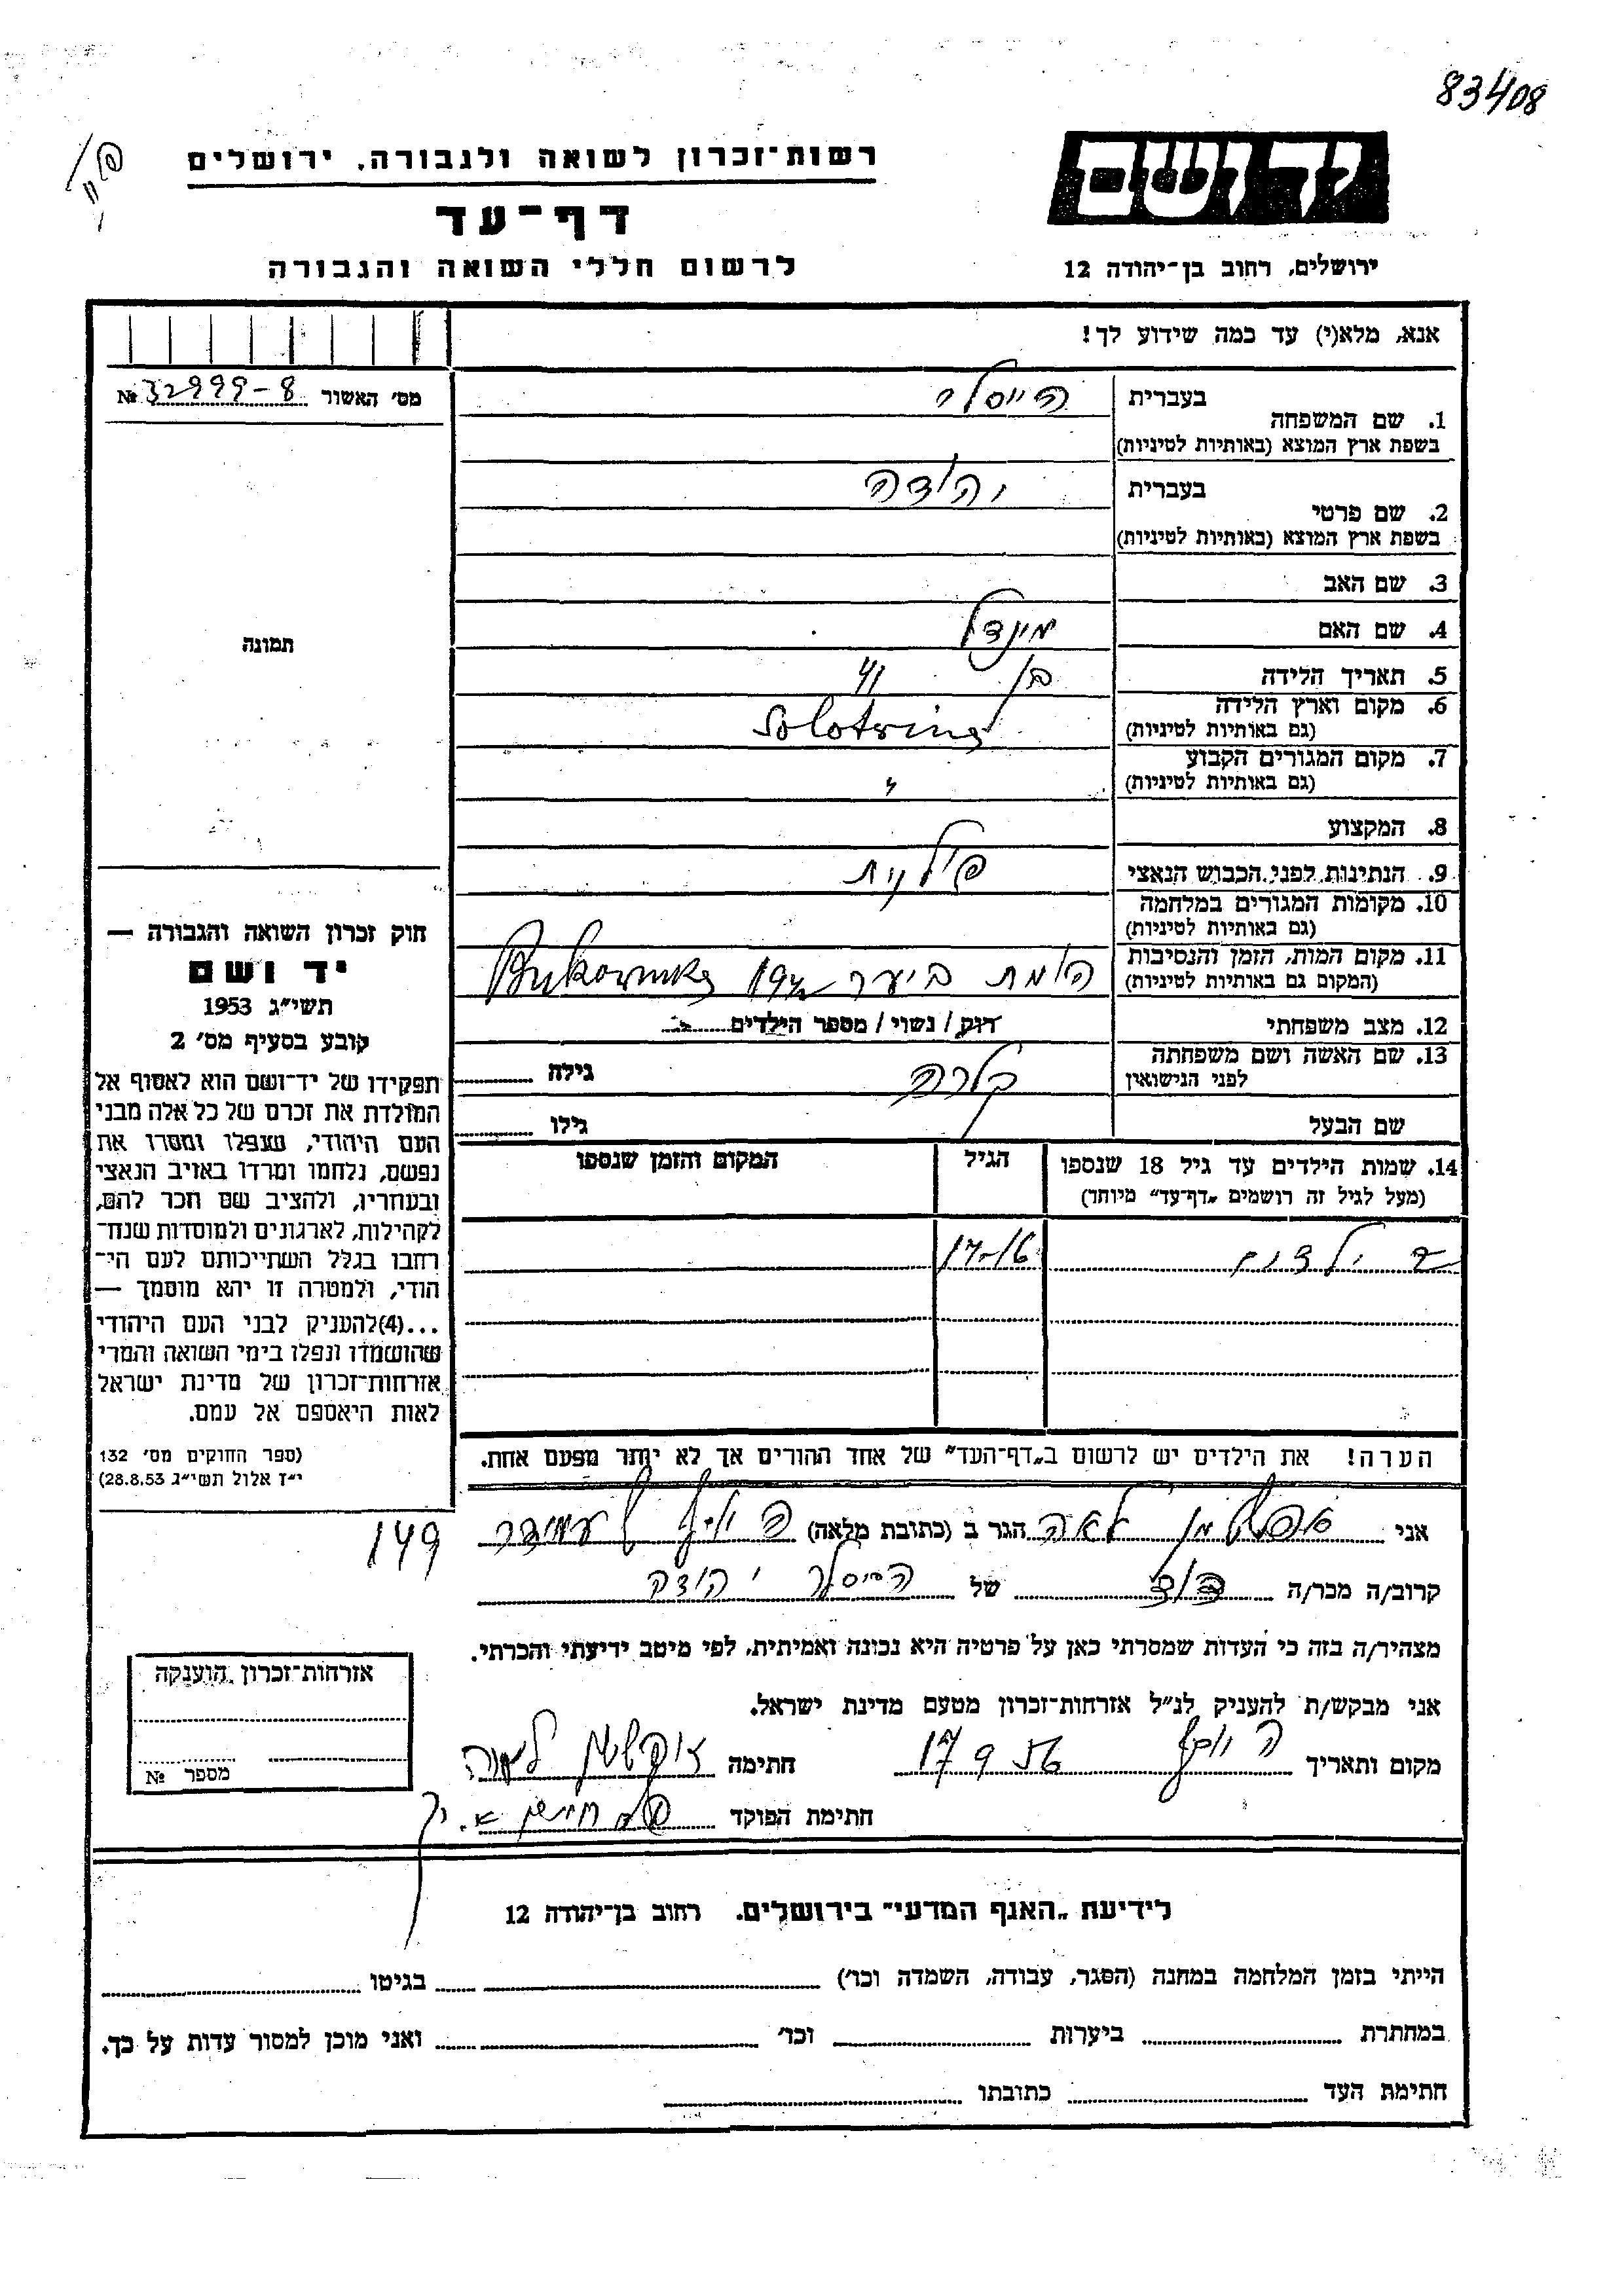 83408
רשות־זכרון לשואה ולגבורה, ירושלים
יד ושם
דף־עד
לרשום חללי השואה והגבורה
ירושלים, רחוב בן־יהודה 12
אנא, מלא(י) עד כמה שידוע לך!
מס׳ האשור № 32999-8
בעברית
1. שם המשפחה
בשפת ארץ המוצא (באותיות לטיניות)
בעברית יהודה
2. שם פרטי
בשפת ארץ המוצא (באותיות לטיניות)
3. שם האב
4. שם האם מינדל
תמונה
5. תאריך הלידה בן
6. מקום וארץ הלידה
(גם באותיות לטיניות)
7. מקום המגורים הקבוע
(גם באותיות לטיניות) "
8. המקצוע
9. הנתינות לפני הכבוש הנאצי פולנית
10. מקומות המגורים במלחמה
(גם באותיות לטיניות)
11. מקום המות, הזמן והנסיבות
(המקום גם באותיות לטיניות) הומת ביער
12. מצב משפחתי רווק / נשוי / מספר הילדים
13. שם האשה ושם משפחתה
לפני הנישואין קלרה גילה
שם הבעל גילו
חוק זכרון השואה והגבורה —
יד ושם
תשי״ג 1953
קובע בסעיף מס׳ 2
תפקידו של יד־ושם הוא לאסוף אל
המולדת את זכרם של כל אלה מבני
העם היהודי, שנפלו ומסרו את
נפשם, נלחמו ומרדו באויב הנאצי
ובעוזריו, ולהציב שם וזכר להם,
לקהילות, לארגונים ולמוסדות שנח־
רבו בגלל השתייכותם לעם הי־
הודי, ולמטרה זו יהא מוסמך —
...(4)להעניק לבני העם היהודי
שהושמדו ונפלו בימי השואה והמרי
אזרחות־זכרון של מדינת ישראל
לאות היאספם אל עמם.
(ספר החוקים מס׳ 132
י״ז אלול תשי״ג 28.8.53)
14. שמות הילדים עד גיל 18 שנספו הגיל המקום והזמן שנספו
(מעל לגיל זה רושמים „דף־עד״ מיוחד)
2 ילדים 17-16
הערה! את הילדים יש לרשום ב„דף־העד״ של אחד ההורים אך לא יותר מפעם אחת.
אני לאה הגר ב (כתובת מלאה)
149
קרוב/ה מכר/ה דוד של הייסלר יהודה
מצהיר/ה בזה כי העדות שמסרתי כאן על פרטיה היא נכונה ואמיתית, לפי מיטב ידיעתי והכרתי.
אני מבקש/ת להעניק לנ״ל אזרחות־זכרון מטעם מדינת ישראל.
מקום ותאריך 17 9 56 חתימה
חתימת הפוקד
אזרחות־זכרון הוענקה
מספר №
לידיעת „האגף המדעי״ בירושלים, רחוב בן־יהודה 12
הייתי בזמן המלחמה במחנה (הסגר, עבודה, השמדה וכו׳) בגיטו
במחתרת ביערות וכו׳ ואני מוכן למסור עדות על כך.
חתימת העד כתובתו